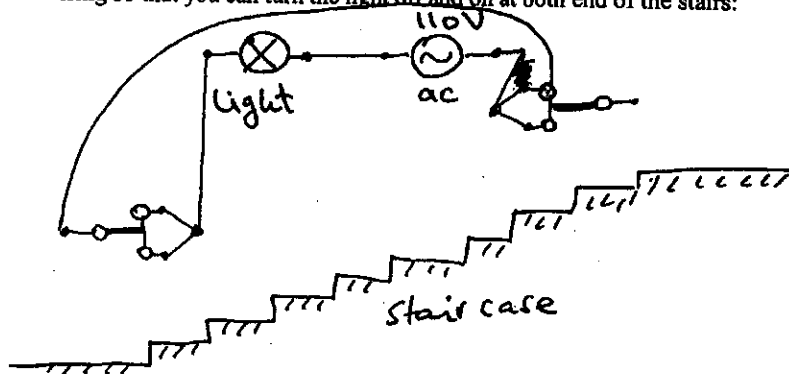 so that you can turn the light on and on at both end of the stairs:
110V
Light
ac
Stair case